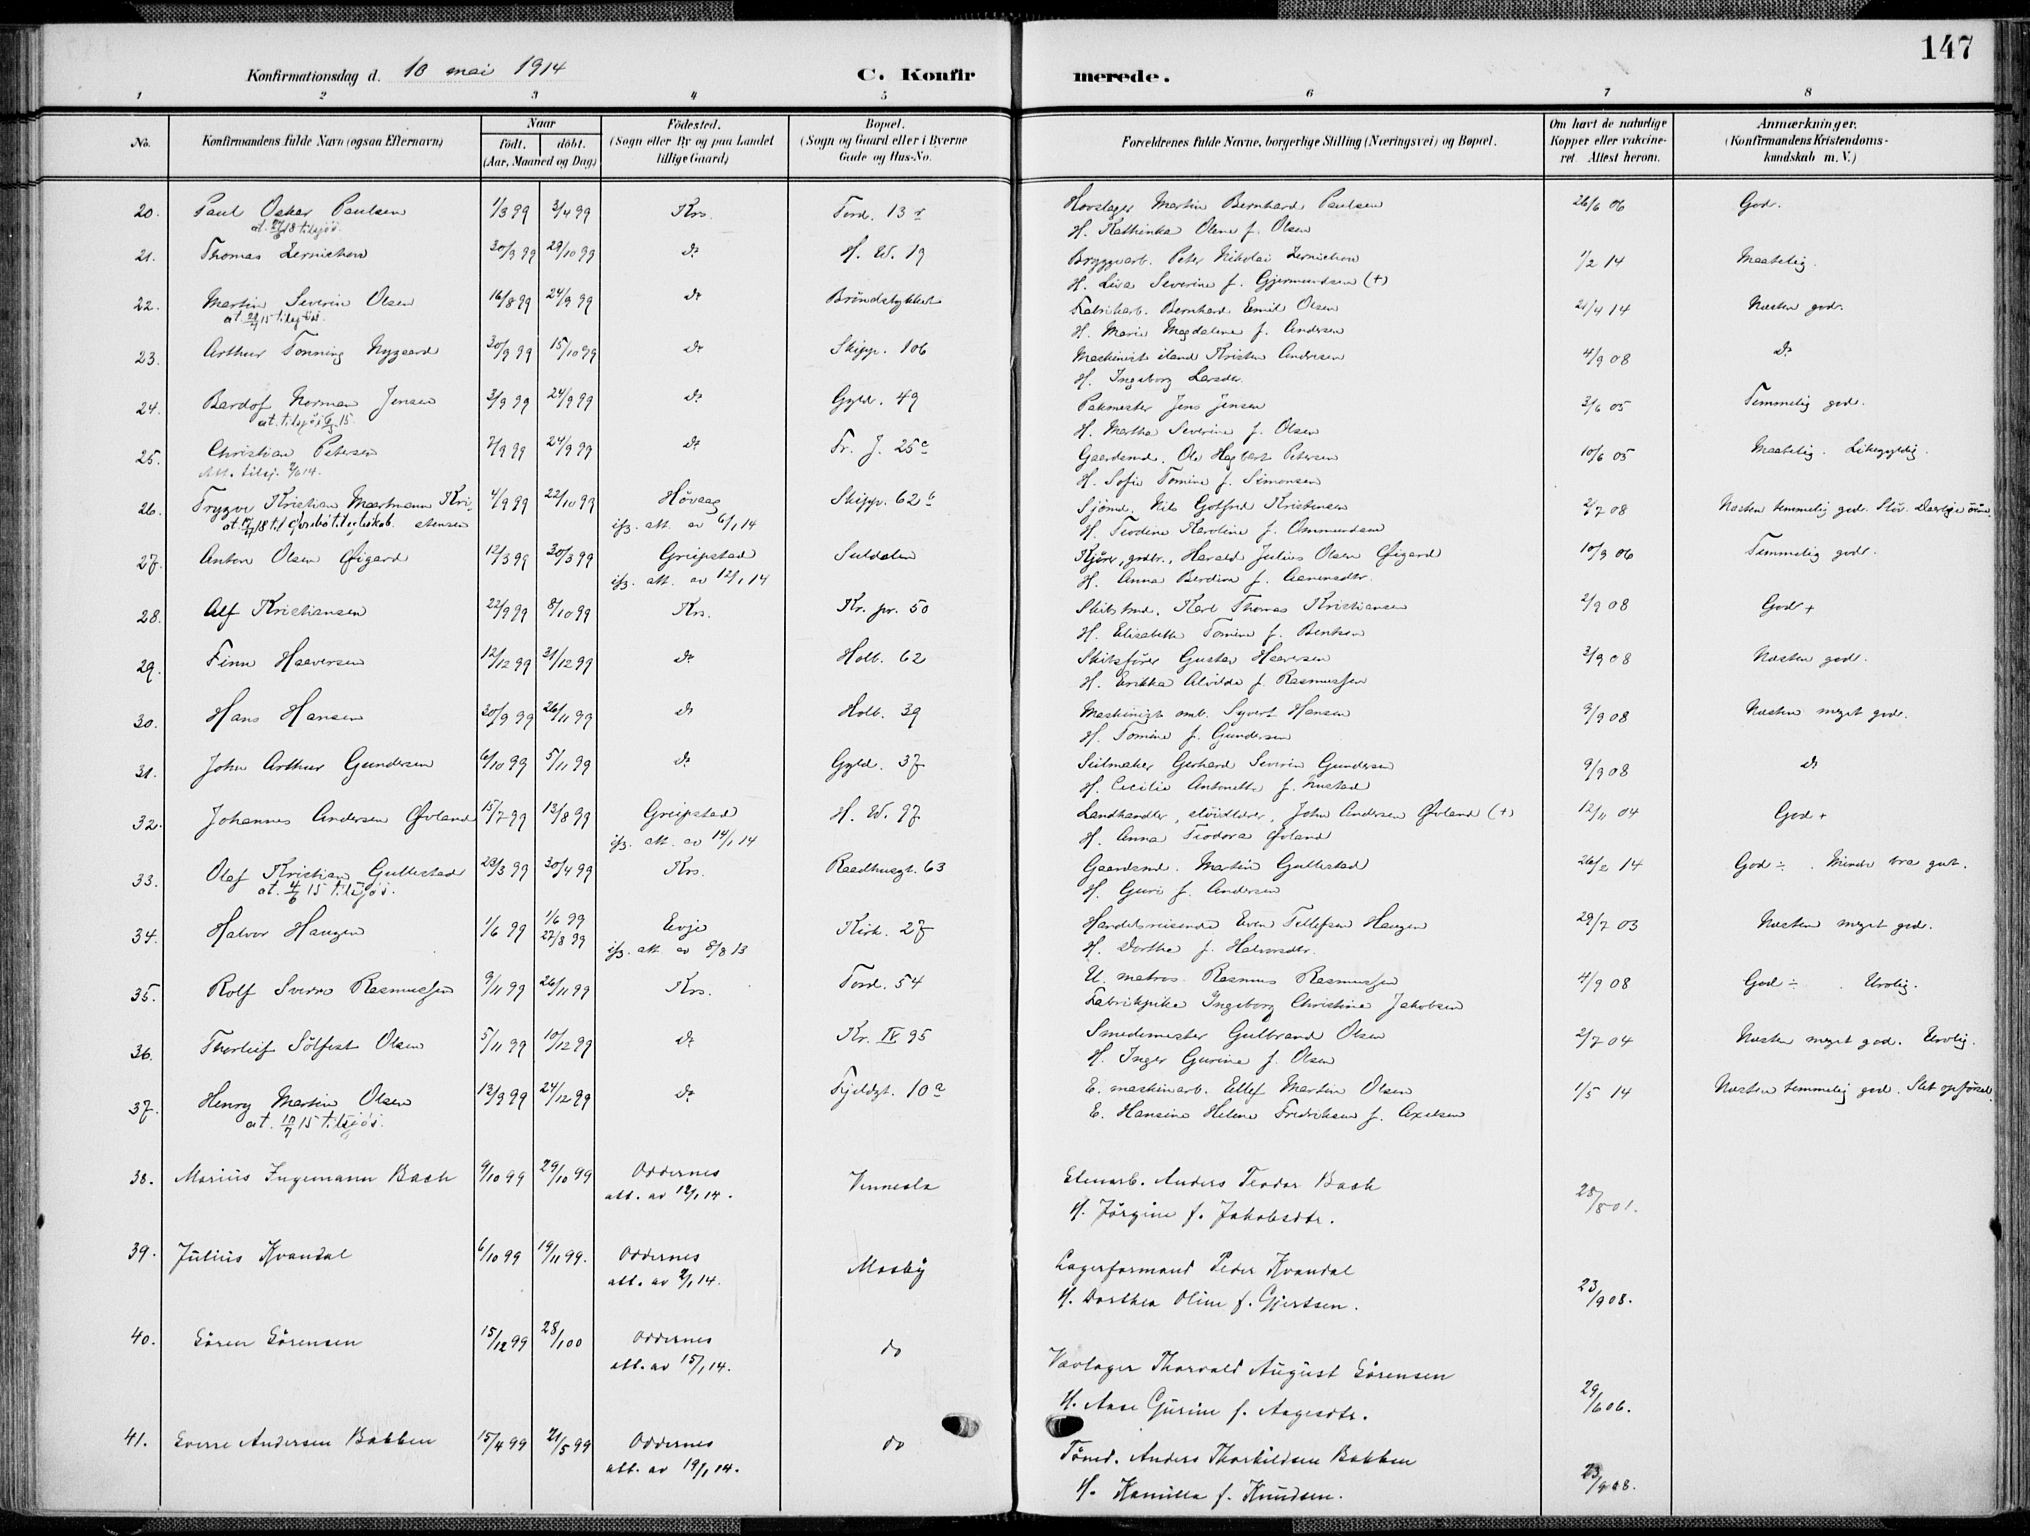 147
Konfirmationsdag d. 10 mai 1914 C. Konfirmerede.
1 2 3 4 5 6 7 8
No. Konfirmandens fulde Navn (ogsaa Efternavn) Naar født. døbt. (Aar, Maaned og Dag) Fødested. (Sogn eller By og paa Landet tillige Gaard) Bopæl. (Sogn og Gaard eller i Byerne Gade og Hus-No. Forældrenes fulde Navne, borgerlige Stilling (Næringsvei) og Bopæl. Om havt de naturlige Kopper eller vaccineret. Attest herom. Anmærkninger. (Konfirmandens Kristendomskundskab m. V.)
20. Paul Oskar Paulsen 1/3 99 3/4 99 Krs. Tord. 13 Hovslager Martin Bernhard Paulsen 26/6 06 God.
H. Kathinka Oline f. Olsen
21. Thomas Zernichow 30/9 99 29/10 99 do H. W. 19 Bryggearb. Peter Nikolai Zernichow 1/2 14 Maatelig.
H. Lisa Severine f. Gjermundsen (+)
22. Martin Severin Olsen 16/8 99 24/9 99 do Brøndstykket Fabrikarb. Bernhard Emil Olsen 21/4 14 Næsten god.
at. 15 tilsjøs. H. Marie Magdalene f. Andersen
23. Arthur Tønning Nygaard 30/9 99 15/10 99 do Skipp. 106 Maskinist iland Kristen Andersen 4/9 08 do
H. Ingeborg Larsdtr.
24. Bardof Norman Jensen 3/9 99 24/9 99 do Gyld. 49 Pakmester Jens Jensen 3/6 05 Temmelig god.
at. tilsjøs 15. H. Martha Severine f. Olsen
25. Christian Petersen 7/9 99 24/9 99 do Fr. J. 25 Gaardsmd. Ole Hagbart Petersen 10/6 05 Maatelig. Likegyldig.
H. Sofie Tomine f. Simonsen
26. Trygve Kristian Martmann Kristensen 4/9 99 22/10 99 Høvaag Skipp. 62 b Sjømd. Nils Gotfred Kristensen 2/7 08 Næsten temmelig god. Sløv.
ifg. att. av 6/1 14 H. Teodine Karoline f. Ommundsen
27. Anton Olsen Øigard 12/3 99 30/3 99 Greipstad Suldalen Kjører, grdbr., Harald Julius Olsen Øigard 10/9 06 Temmelig god.
ifg. att. av 12/1 14 H. Anna Berdine f. Aanensdtr.
28. Alf Kristiansen 22/9 99 8/10 99 Krs. Kr. pr. 50 Skibstmd. Karl Thomas Kristiansen 2/9 08 God +
H. Elisabeth Tomine f. Bentsen
29. Finn Haaversen 12/12 99 31/12 99 do Holb. 62 Skibsfører Gustav Haaversen 3/9 08 Næsten god.
H. Erikka Alvilde f. Rasmussen
30. Hans Hansen 30/9 99 26/11 99 do Holb. 39 Maskinist omb. Syvert Hansen 9/9 08 Næsten meget god.
H. Tomine f. Gundersen
31. John Arthur Gundersen 6/10 99 5/11 99 do Gyld. 37 Seilmaker Gerhard Severin Gundersen 9/9 08 do
H. Cecilie Antonette f. Hustad
32. Johannes Andersen Øvland 15/7 99 13/8 99 Greipstad H. W. 97 Landhandler, elvidlærer, John Andersen Øvland (+) 12/11 04 God +
ifg. att. av 14/1 14 H. Anna Teodora Øvland
33. Olaf Kristian Gullestad 23/3 99 30/4 99 Krs. Raadhusgt. 63 Gaardsmd. Martin Gullestad 26/2 14 God ÷. Mindre bra gut.
at. 4/6 15 tilsjøs. H. Guri f. Andersen
34. Halvor Haugen 1/6 99 1/6 99 27/8 99 Evje Kirk. 27 Handelsreisende Even Tellefsen Haugen 29/7 03 Næsten meget god.
ifg. att. av 8/8 13 H. Dorthe f. Halvorsdtr.
35. Rolf Sverre Rasmussen 9/11 99 26/11 99 Krs. Tord. 54 U. matros Rasmus Rasmussen 4/9 08 God ÷. Urolig.
Fabrikpike Ingeborg Christine Jakobsen
36. Thorleif Sølfest Olsen 5/11 99 10/12 99 do Kr. IV 95 Smedemester Gulbrand Olsen 2/7 04 Næsten meget god. Urolig.
H. Inger Gurine f. Olsen
37. Henry Martin Olsen 13/9 99 24/12 99 do Fjeldgt. 10 a E. maskinarb. Ellef Martin Olsen 1/5 14 Næsten temmelig god. Slet opførsel.
at. 10/7 15 tilsjøs. E. Hansine Helene Fredriksen f. Axelsen
38. Marius Ingemann Bach 9/10 99 29/10 99 Oddernes Vennesla Elvearb. Anders Teodor Bach 28/8 01.
att. av 12/1 14. H. Jørgine f. Jakobsdtr.
39. Julius Kvandal 6/10 99 19/11 99. Oddernes Mosby Lagerformand Peder Kvandal 23/9 08.
att. av 2/1 14. H. Dorthea Oline f. Gjertsen.
40. Sören Sörensen 15/12 99 28/1 00 Oddernes do Vævlager Thorvald August Sörensen 29/6 06.
att. av 15/1 14. H. Aase Gurine f. Aagesdtr.
41. Sverre Andersen Bakken 15/4 99 21/5 99 Oddernes do Tømd. Anders Thorkildsen Bakken 23/9 08.
att. av 19/1 14. H. Kamilla f. Knudsen.